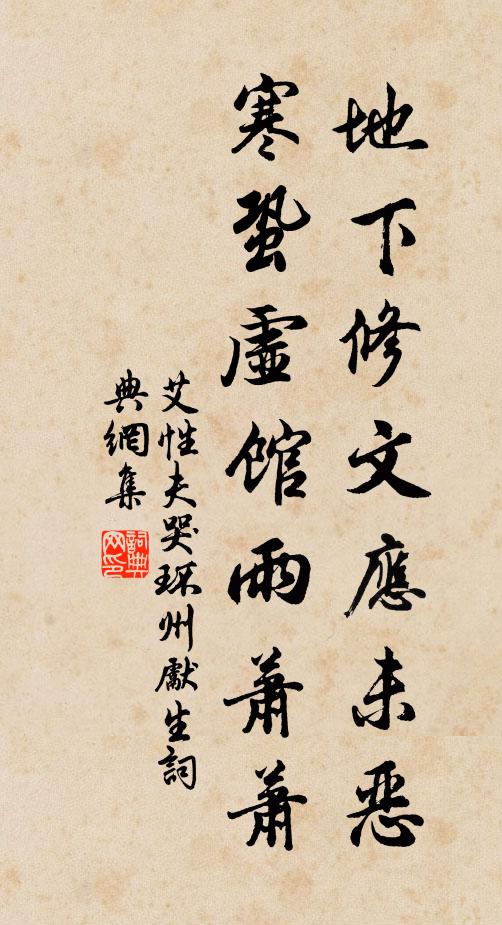 地下修文應未惡
寒蛩虛館雨蕭蕭
艾性夫哭琛州獻生詞
典網集
詞典
网印